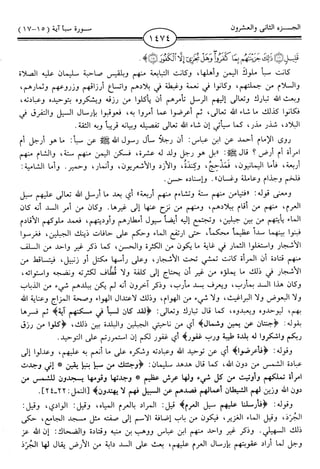 الجـــزء الثانى والعشرون
١٤٧٤
سورة سبأ آية (١٥-١٧)
قَلِيلٍ ذَلِكَ جَزَيْنَاهُمْ بِمَا كَفَرُوا وَهَلْ نُجَازِي إِلَّا الْكَفُورَ
كانت سبأ ملوك اليمن وأهلها، وكانت التبابعة منهم وبلقيس صاحبة سليمان عليه الصلاة
والسلام من جملتهم، وكانوا في نعمة وغبطة في بلادهم واتساع أرزاقهم وزروعهم وثمارهم،
وبعث الله تبارك وتعالى إليهم الرسل تأمرهم أن يأكلوا من رزقه ويشكروه بتوحيده وعبادته،
فكانوا كذلك ما شاء الله تعالى، ثم أعرضوا عما أمروا به، فعوقبوا بإرسال السيل والتفرق في
البلاد، شذر مذر، كما سيأتي إن شاء الله تعالى تفصيله وبيانه قريباً وبه الثقة.
روى الإمام أحمد عن ابن عباس: أن رجلاً سأل رسول الله ﷺ عن سبأ: ما هو أرجل أم
امرأة أم أرض ؟ قال ﷺ: «بل هو رجل ولد له عشرة، فسكن اليمن منهم ستة، والشام منهم
أربعة، فأما اليمانيون، فَمَذْحِجٌ، وكِنْدَةُ، والأزد والأشعريون، وأنمار، وحمير. وأما الشامية:
فلخم وجذام وعاملة وغسان». وإسناده حسن.
ومعنى قوله: «فتيامن منهم ستة وتشاءم منهم أربعة» أي بعد ما أرسل الله تعالى عليهم سيل
العرم، منهم من أقام ببلادهم، ومنهم من نزح عنها إلى غيرها. وكان من أمر السد أنه كان
الماء يأتيهم من بين جبلين، وتجتمع إليه أيضاً سيول أمطارهم وأوديتهم، فعمد ملوكهم الأقادم
فبنوا بينهما سداً عظيماً محكماً، حتى ارتفع الماء وحكم على حافات ذينك الجبلين، فغرسوا
الأشجار واستغلوا الثمار في غاية ما يكون من الكثرة والحسن، كما ذكر غير واحد من السلف
منهم قتادة أن المرأة كانت تمشي تحت الأشجار، وعلى رأسها مكتل أو زنبيل، فيتساقط من
الأشجار في ذلك ما يملؤه من غير أن يحتاج إلى كلفة ولا قُطاف لكثرته ونضجه واستوائه،
وكان هذا السد بمأرب، ويعرف بسد مأرب، وذكر آخرون أنه لم يكن ببلدهم شيء من الذباب
ولا البعوض ولا البراغيث، ولا شيء من الهوام، وذلك لاعتدال الهواء وصحة المزاج وعناية الله
بهم، ليوحدوه ويعبدوه، كما قال تبارك وتعالى: ﴿لقد كان لسبأ في مسكنهم آية﴾ ثم فسرها
بقوله: ﴿جنتان عن يمين وشمال﴾ أي من ناحيتي الجبلين والبلدة بين ذلك، ﴿كلوا من رزق
ربكم واشكروا له بلدة طيبة ورب غفور﴾ أي غفور لكم إن استمررتم على التوحيد.
وقوله: ﴿فأعرضوا﴾ أي عن توحيد الله وعبادته وشكره على ما أنعم به عليهم، وعدلوا إلى
عبادة الشمس من دون الله، كما قال هدهد سليمان: ﴿وجئتك من سبإ بنبإ يقين * إني وجدت
امرأة تملكهم وأوتيت من كل شيء ولها عرش عظيم * وجدتها وقومها يسجدون للشمس من
دون الله وزين لهم الشيطان أعمالهم فصدهم عن السبيل فهم لا يهتدون﴾ [النمل: ٢٢-٢٤].
وقوله: ﴿فأرسلنا عليهم سيل العرم﴾ قيل: المراد بالعرم المياه، وقيل: الوادي، وقيل:
الجُرَذ، وقيل الماء الغزير، فيكون من باب إضافة الاسم إلى صفته مثل مسجد الجامع، حكى
ذلك السهيلي. وذكر غير واحد منهم ابن عباس ووهب بن منبه وقتادة والضحاك: إن الله عز
وجل لما أراد عقوبتهم بإرسال العرم عليهم، بعث على السد دابة من الأرض يقال لها الجُرَذ